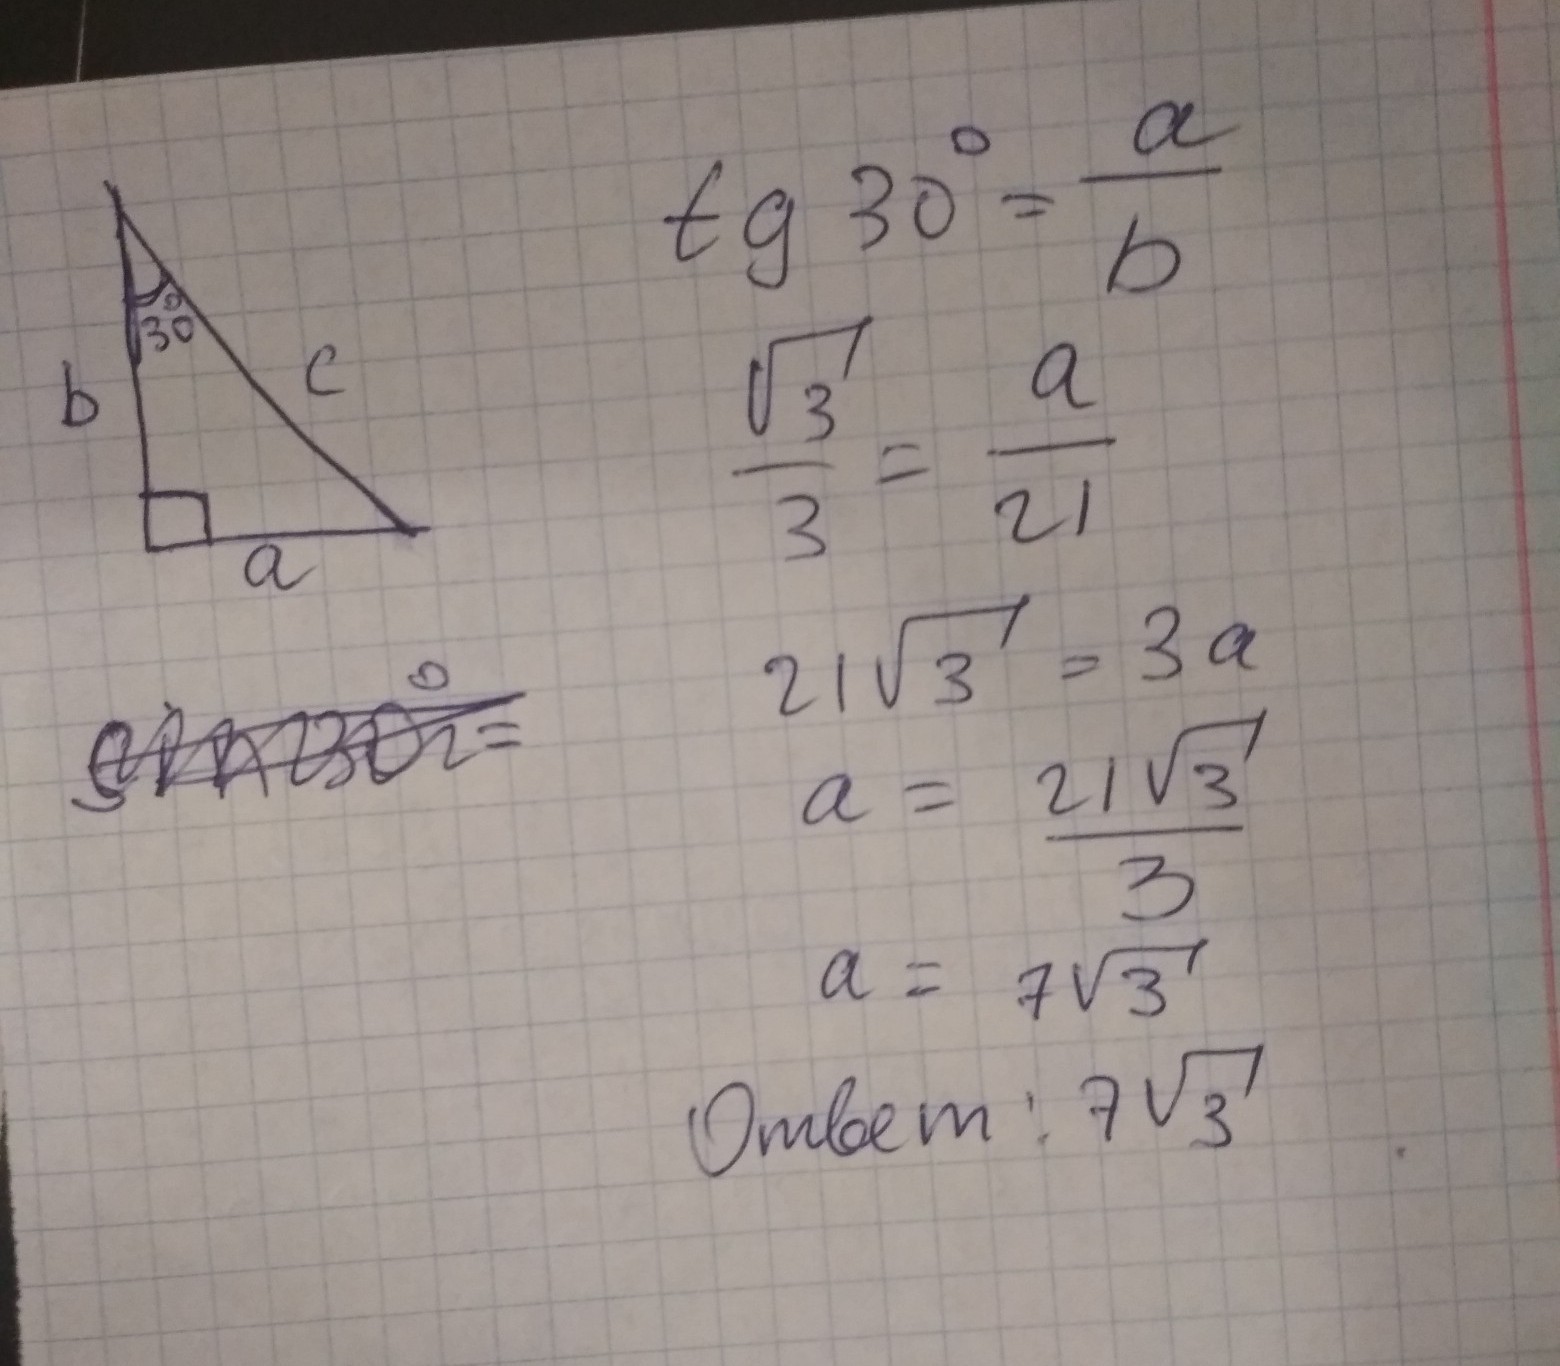 30°
b
c
a
sin 30° =
tg 30° = a/b
√3/3 = a/21
21√3 = 3a
a = 21√3/3
a = 7√3
Ответ: 7√3